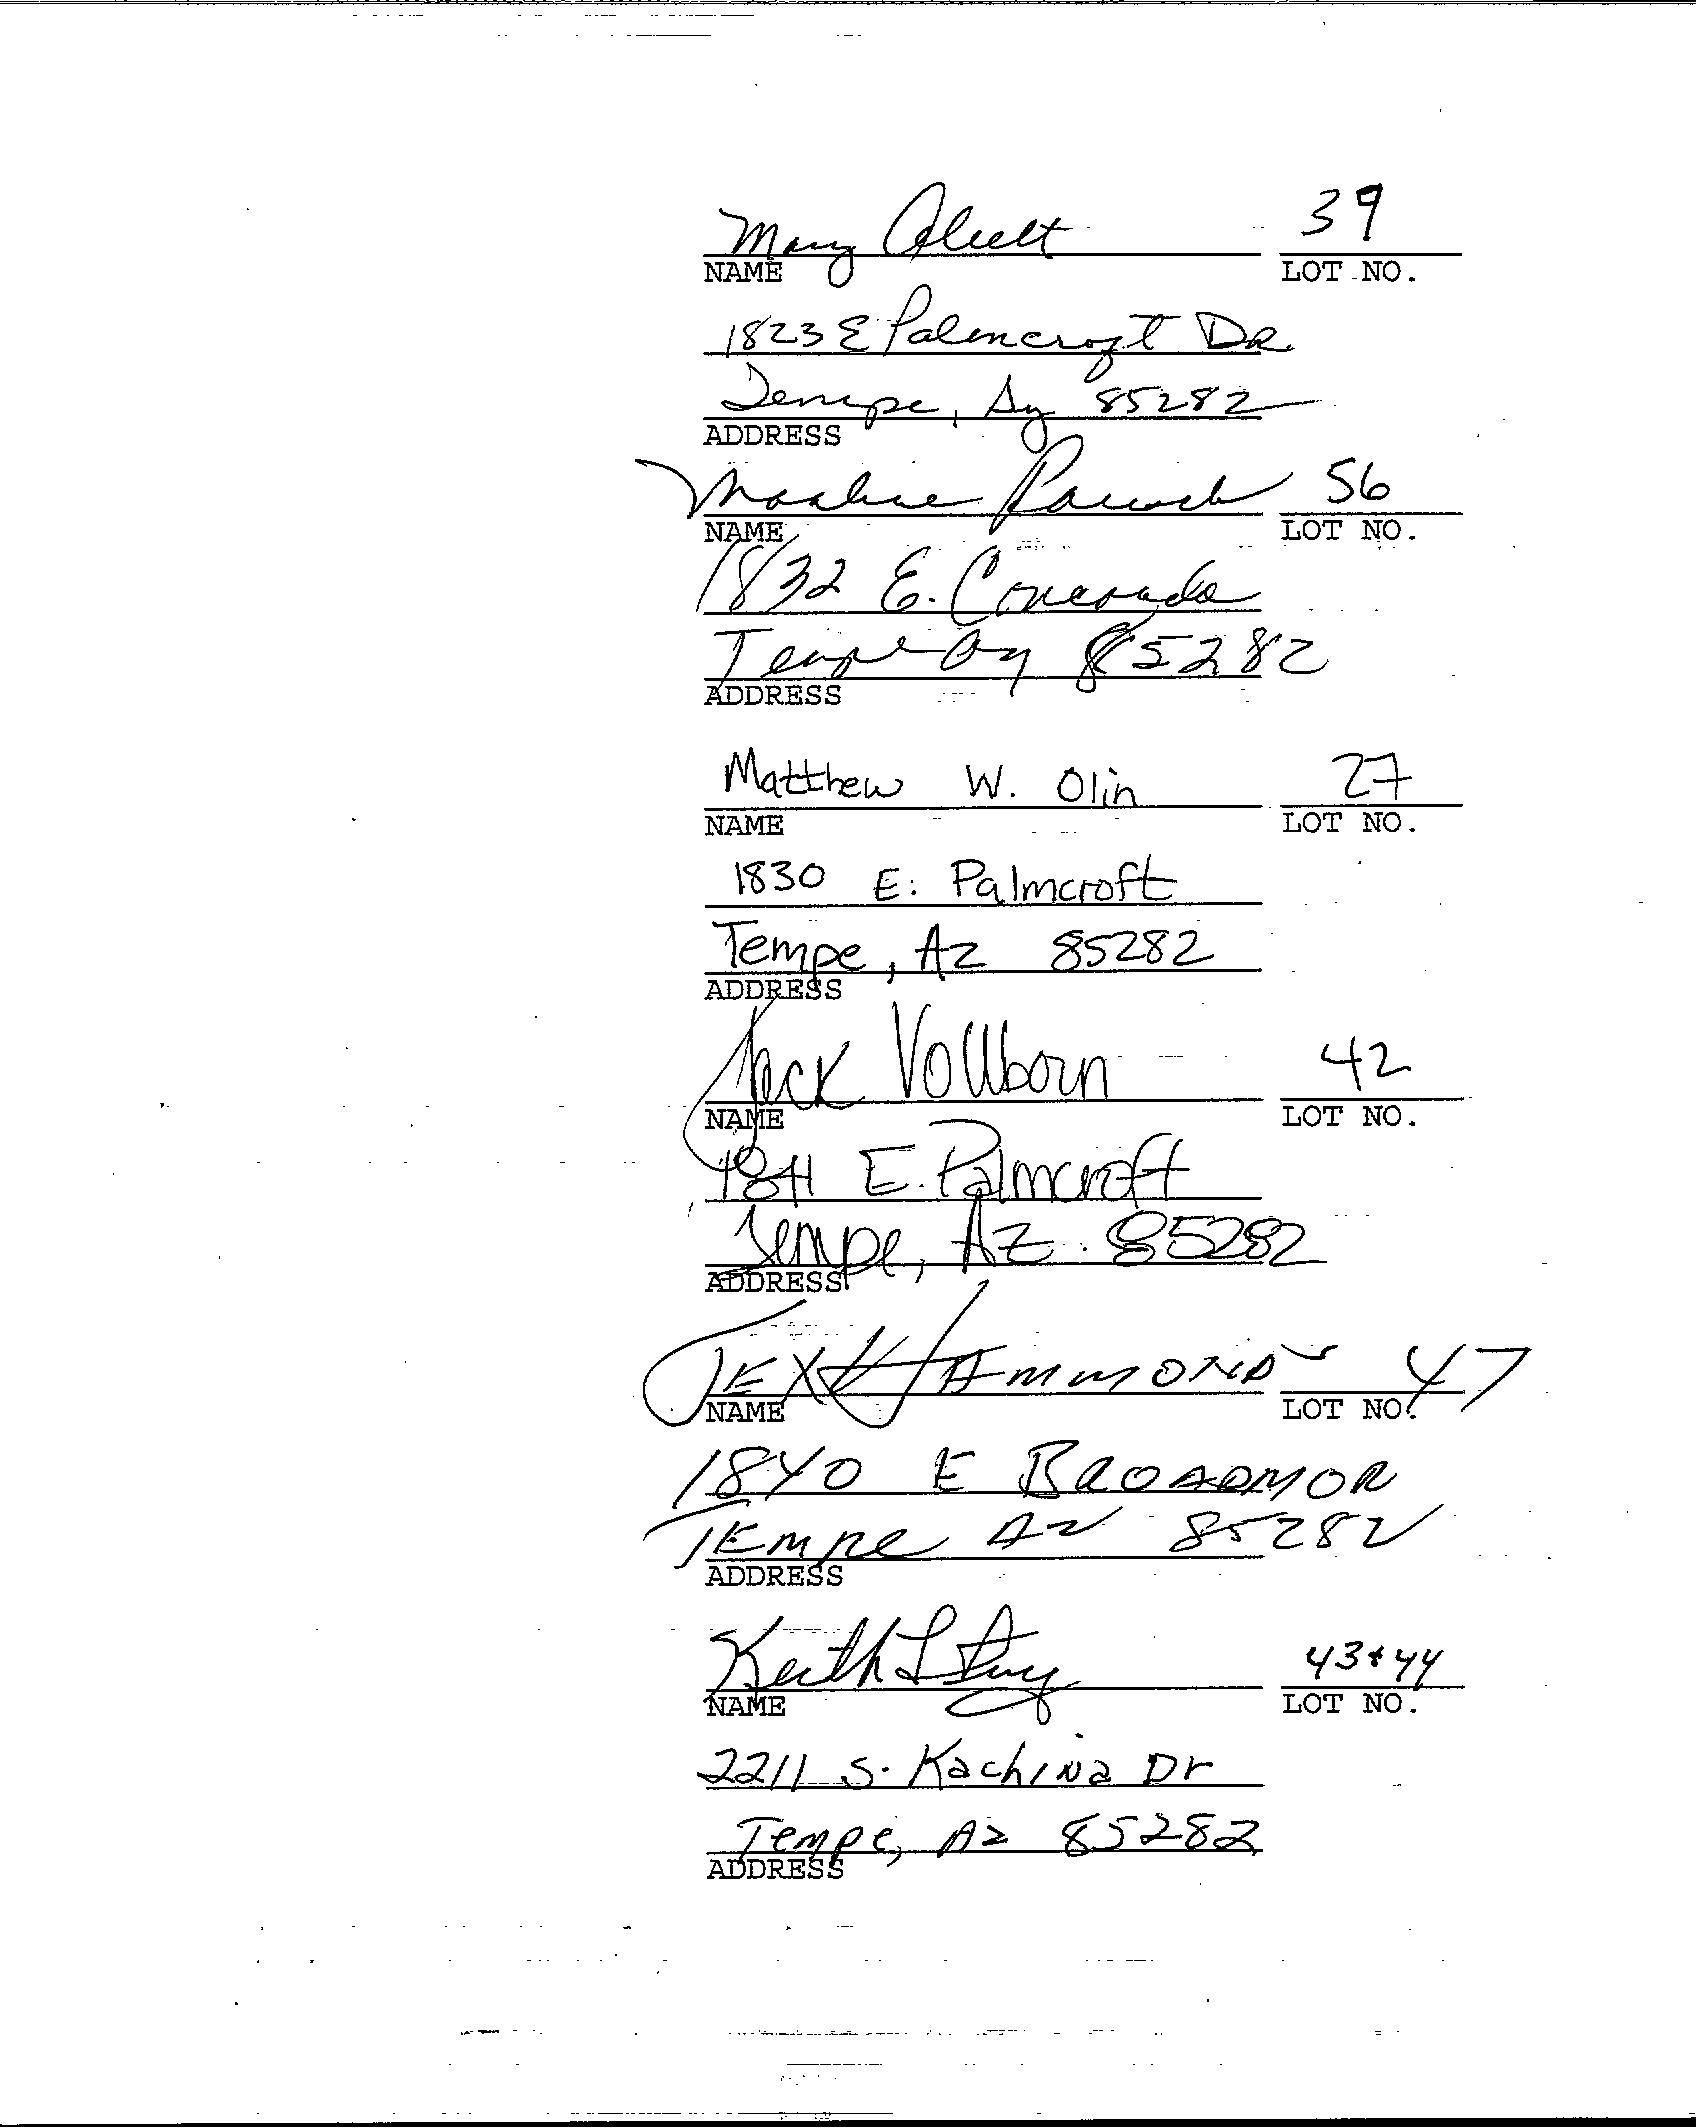 Mary 39
NAME LOT NO.
1823 E Palmcroft DR.
Tempe, Az 85282
ADDRESS
56
NAME LOT NO.
1832 E.
Tempe Az 85282
ADDRESS
Matthew W. Olin 27
NAME LOT NO.
1830 E. Palmcroft
Tempe, Az 85282
ADDRESS
Jack Vollborn 42
NAME LOT NO.
1841 E. Palmcroft
Tempe, AZ 85282
ADDRESS
TEX HAMMOND 47
NAME LOT NO.
1840 E BROADMOR
TEmpe AZ 85282
ADDRESS
Keith L 43+44
NAME LOT NO.
2211 S. Kachina Dr
Tempe, Az 85282
ADDRESS